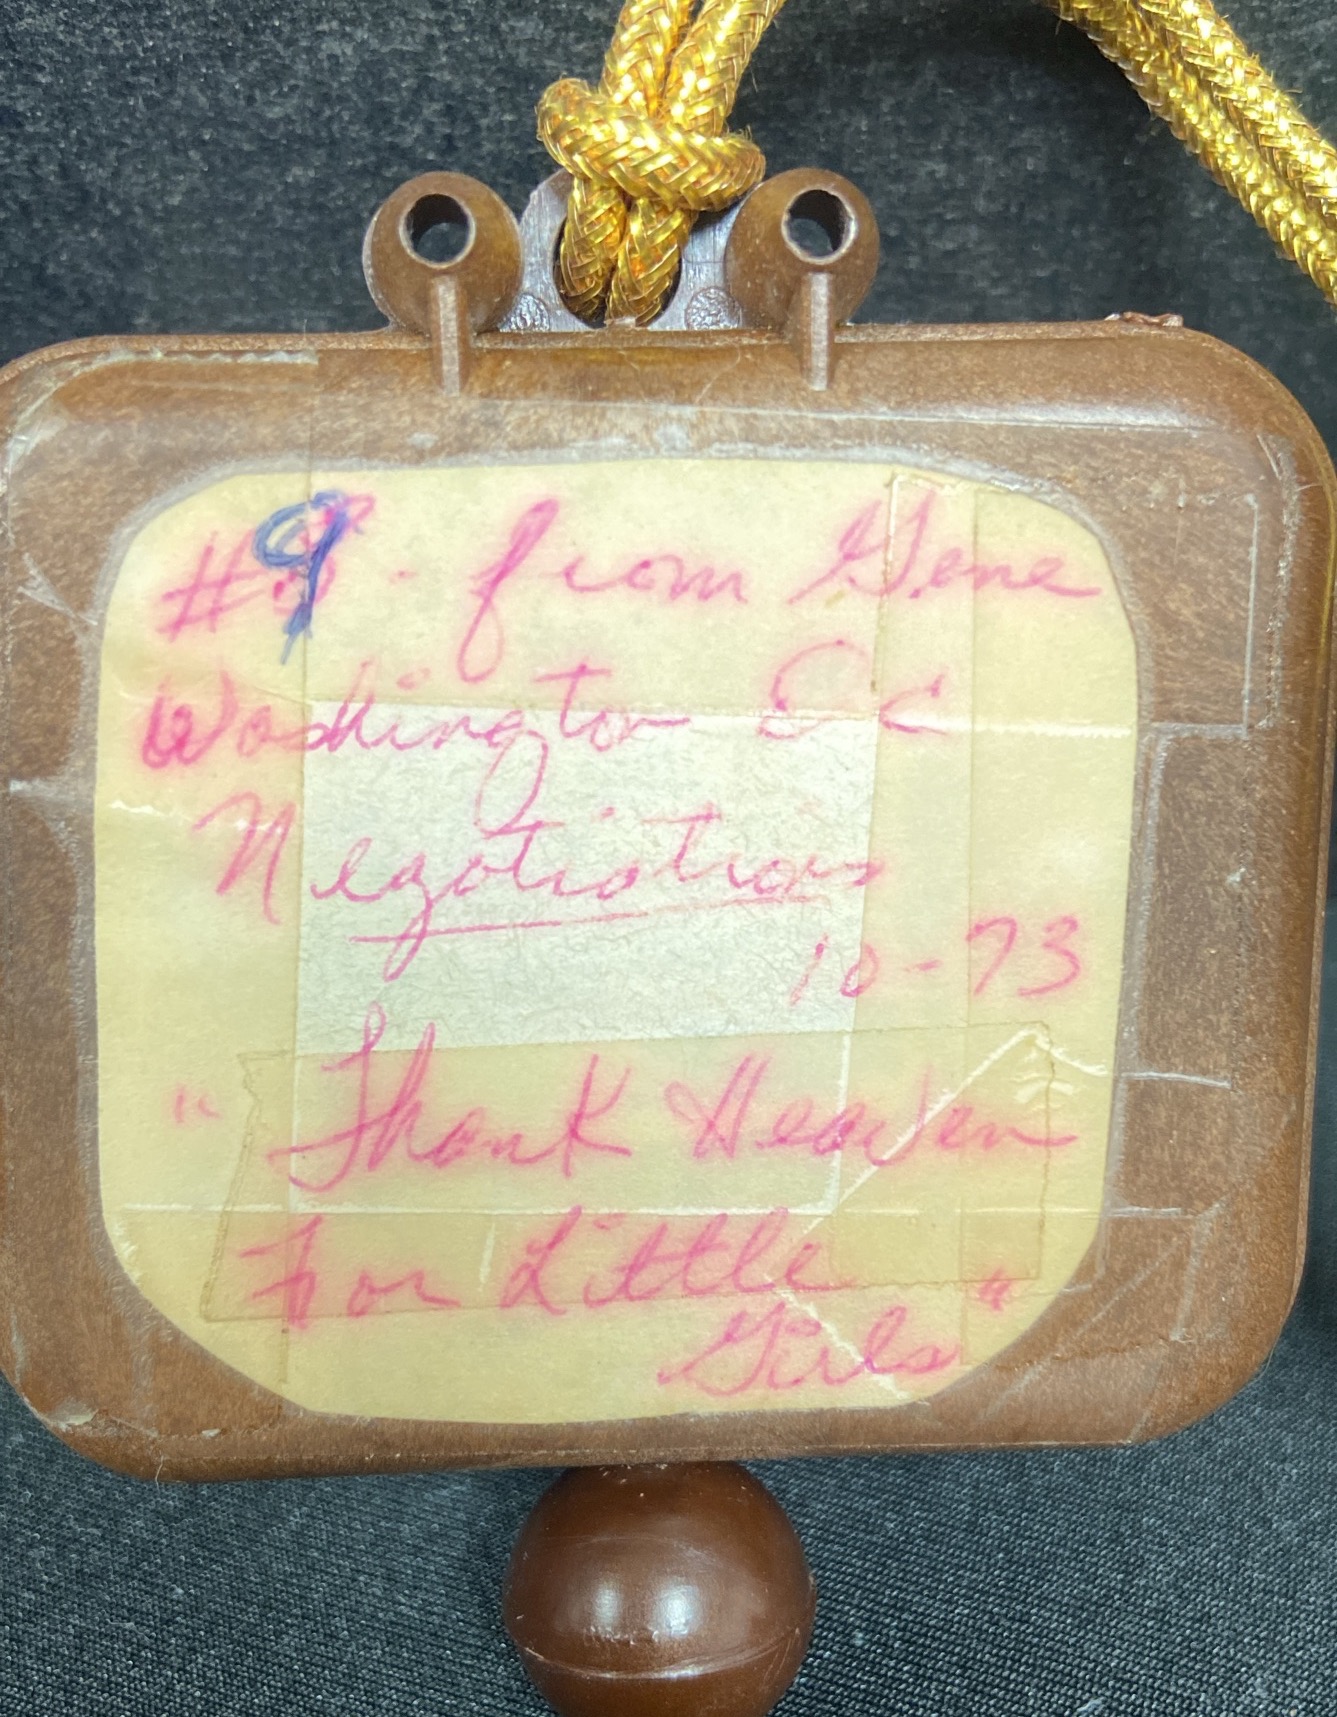 #9 - from Gene
Washington DC
Negotiations
10-73
"Thank Heaven
For Little
Girls"